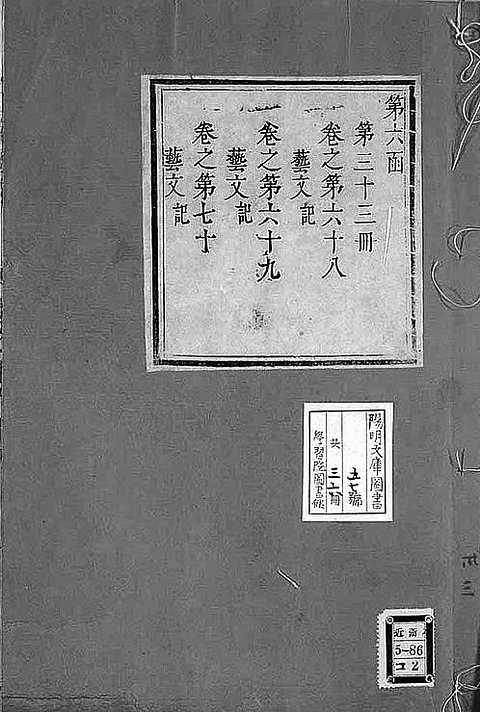 第六函
第三十三冊
卷之第六十八
藝文記
卷之第六十九
藝文記
卷之第七十
藝文記
陽明文庫圖書
五七號
共三六冊
學習院圖書館
近衞
5-86
コ2